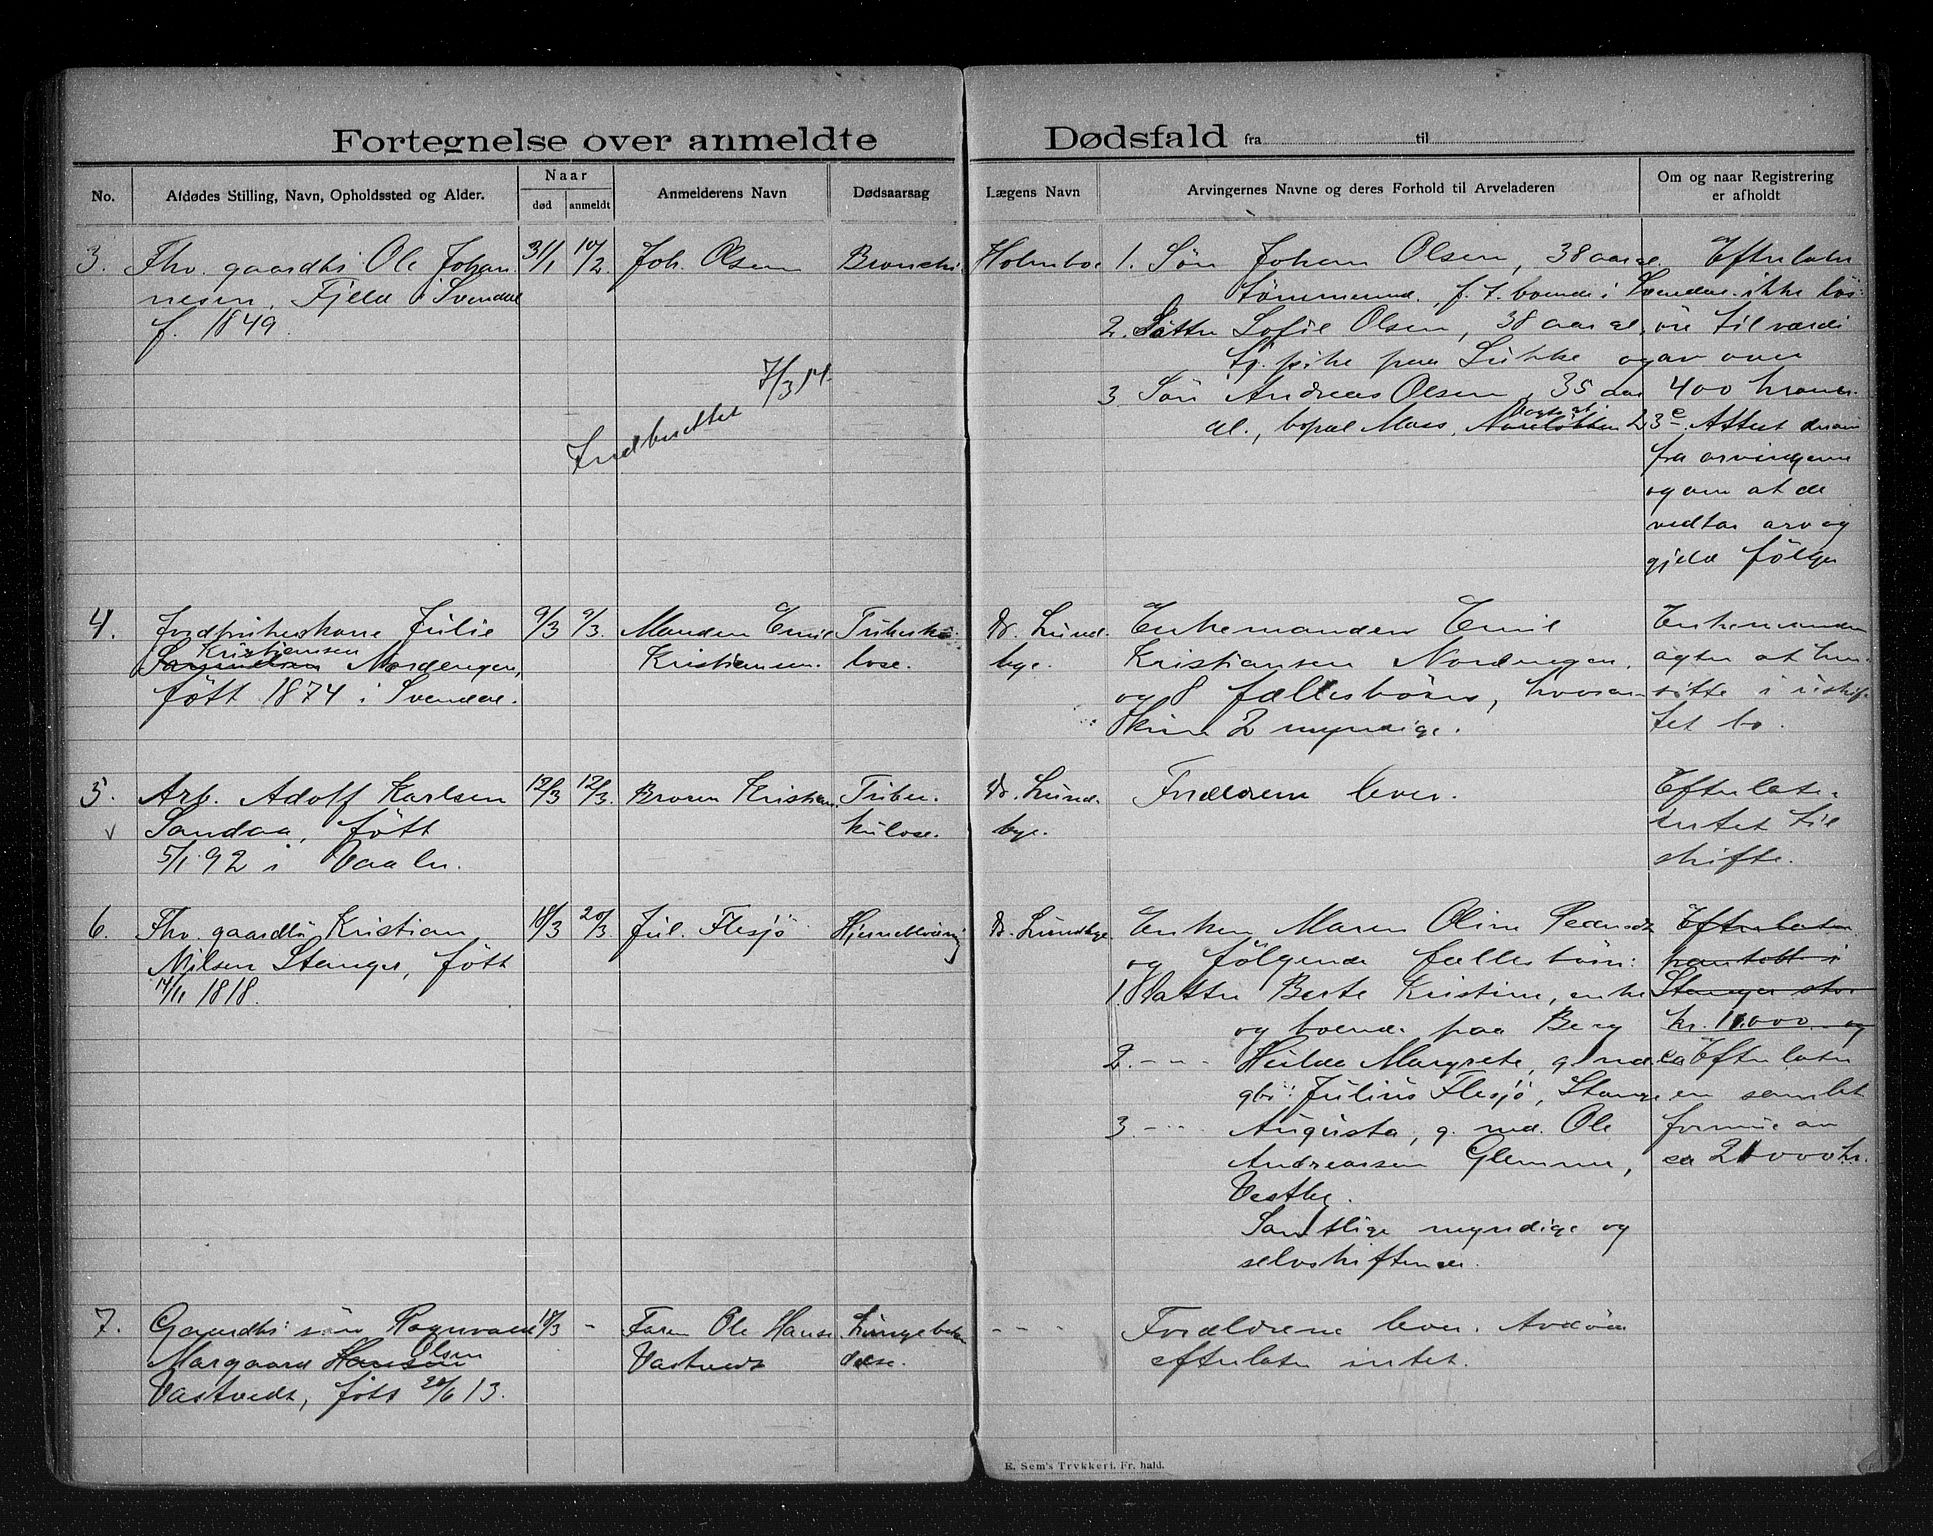 Fortegnelse over anmeldte Dødsfald fra til
No.
Afdødes Stilling, Navn, Opholdssted og Alder.
Naar
død
anmeldt
Anmelderens Navn
Dødsaarsag
Lægens Navn
Arvingernes Navne og deres Forhold til Arveladeren
Om og naar Registrering
er afholdt
3.
Fhv. gaardbr. Ole Johan
nesen, Fjeld i Svendal
f. 1849.
31/1
10/2
Joh. Olsen
Bronchi
Holmboe
1. Søn Johan Olsen, 38 aar gl.
tømmermd., f. t. boende i Svendal
2. Datter Sofie Olsen, 38 aar gl.
tj. pike paa Sukke
3. Søn Andreas Olsen, 35 aar
gl., bopæl Moss,
Efterlater
ikke løs-
øre til værdi
av over
400 kroner.
Attest derom
fra arvingerne
og om at de
vedtar arv og
gjeld følger
Indberettet 7/3 14.
4.
Jordbrukerskone Julie
Kristiansen
Nordengen,
født 1874 i Svendal.
9/3
9/3.
Manden Emil
Kristiansen.
Tuberku-
lose.
Dr. Lund-
bye.
Enkemanden Emil
Kristiansen Nordengen,
og 8 fællesbørn, hvorav
kun 2 myndige.
Enkemanden
agter at hen-
sitte i uskif-
tet bo.
5.
Arb. Adolf Karlsen
Sandaa, født
5/1 92 i Vaaler.
12/3
12/3.
Broren Kristian
Tuber-
kulose.
Dr. Lund-
bye.
Forældrene lever.
Efterlate-
intet til
skifte.
6.
Fhv. gaardbr. Kristian
Nilsen Stanger, født
14/11 1818.
18/3
20/3
Jul. Flesjø
Hjerneblødning
Dr. Lundbye
Enken Maren Oline Pedersdt
og følgende fællesbørn:
1. Datter Berte Kristine, enke
og boende paa Berg
2. - - - Hulda Margrete, g. med
gbr. Julius Flesjø, Stange
3. - - - Augusta, g. med. Ole
Andreassen Glemme,
Vestby.
Samtlige myndige og
selvskiftende.
Efterlater
pantobl. i
Stanger stor
kr. 11.000 og
Efterlater
en samlet
formue av
ca 21000 kr.
7.
Gaardbr. søn Ragnvald
Olsen
Margaard Hansen
Vastvedt, født 20/6 13.
18/3
-
Faren Ole Hanse
Vastvedt
Lungebeten
delse.
- - -
Forældrene lever. Avdøde
efterlater intet.
E. Sem's Trykkeri. Fr.hald.